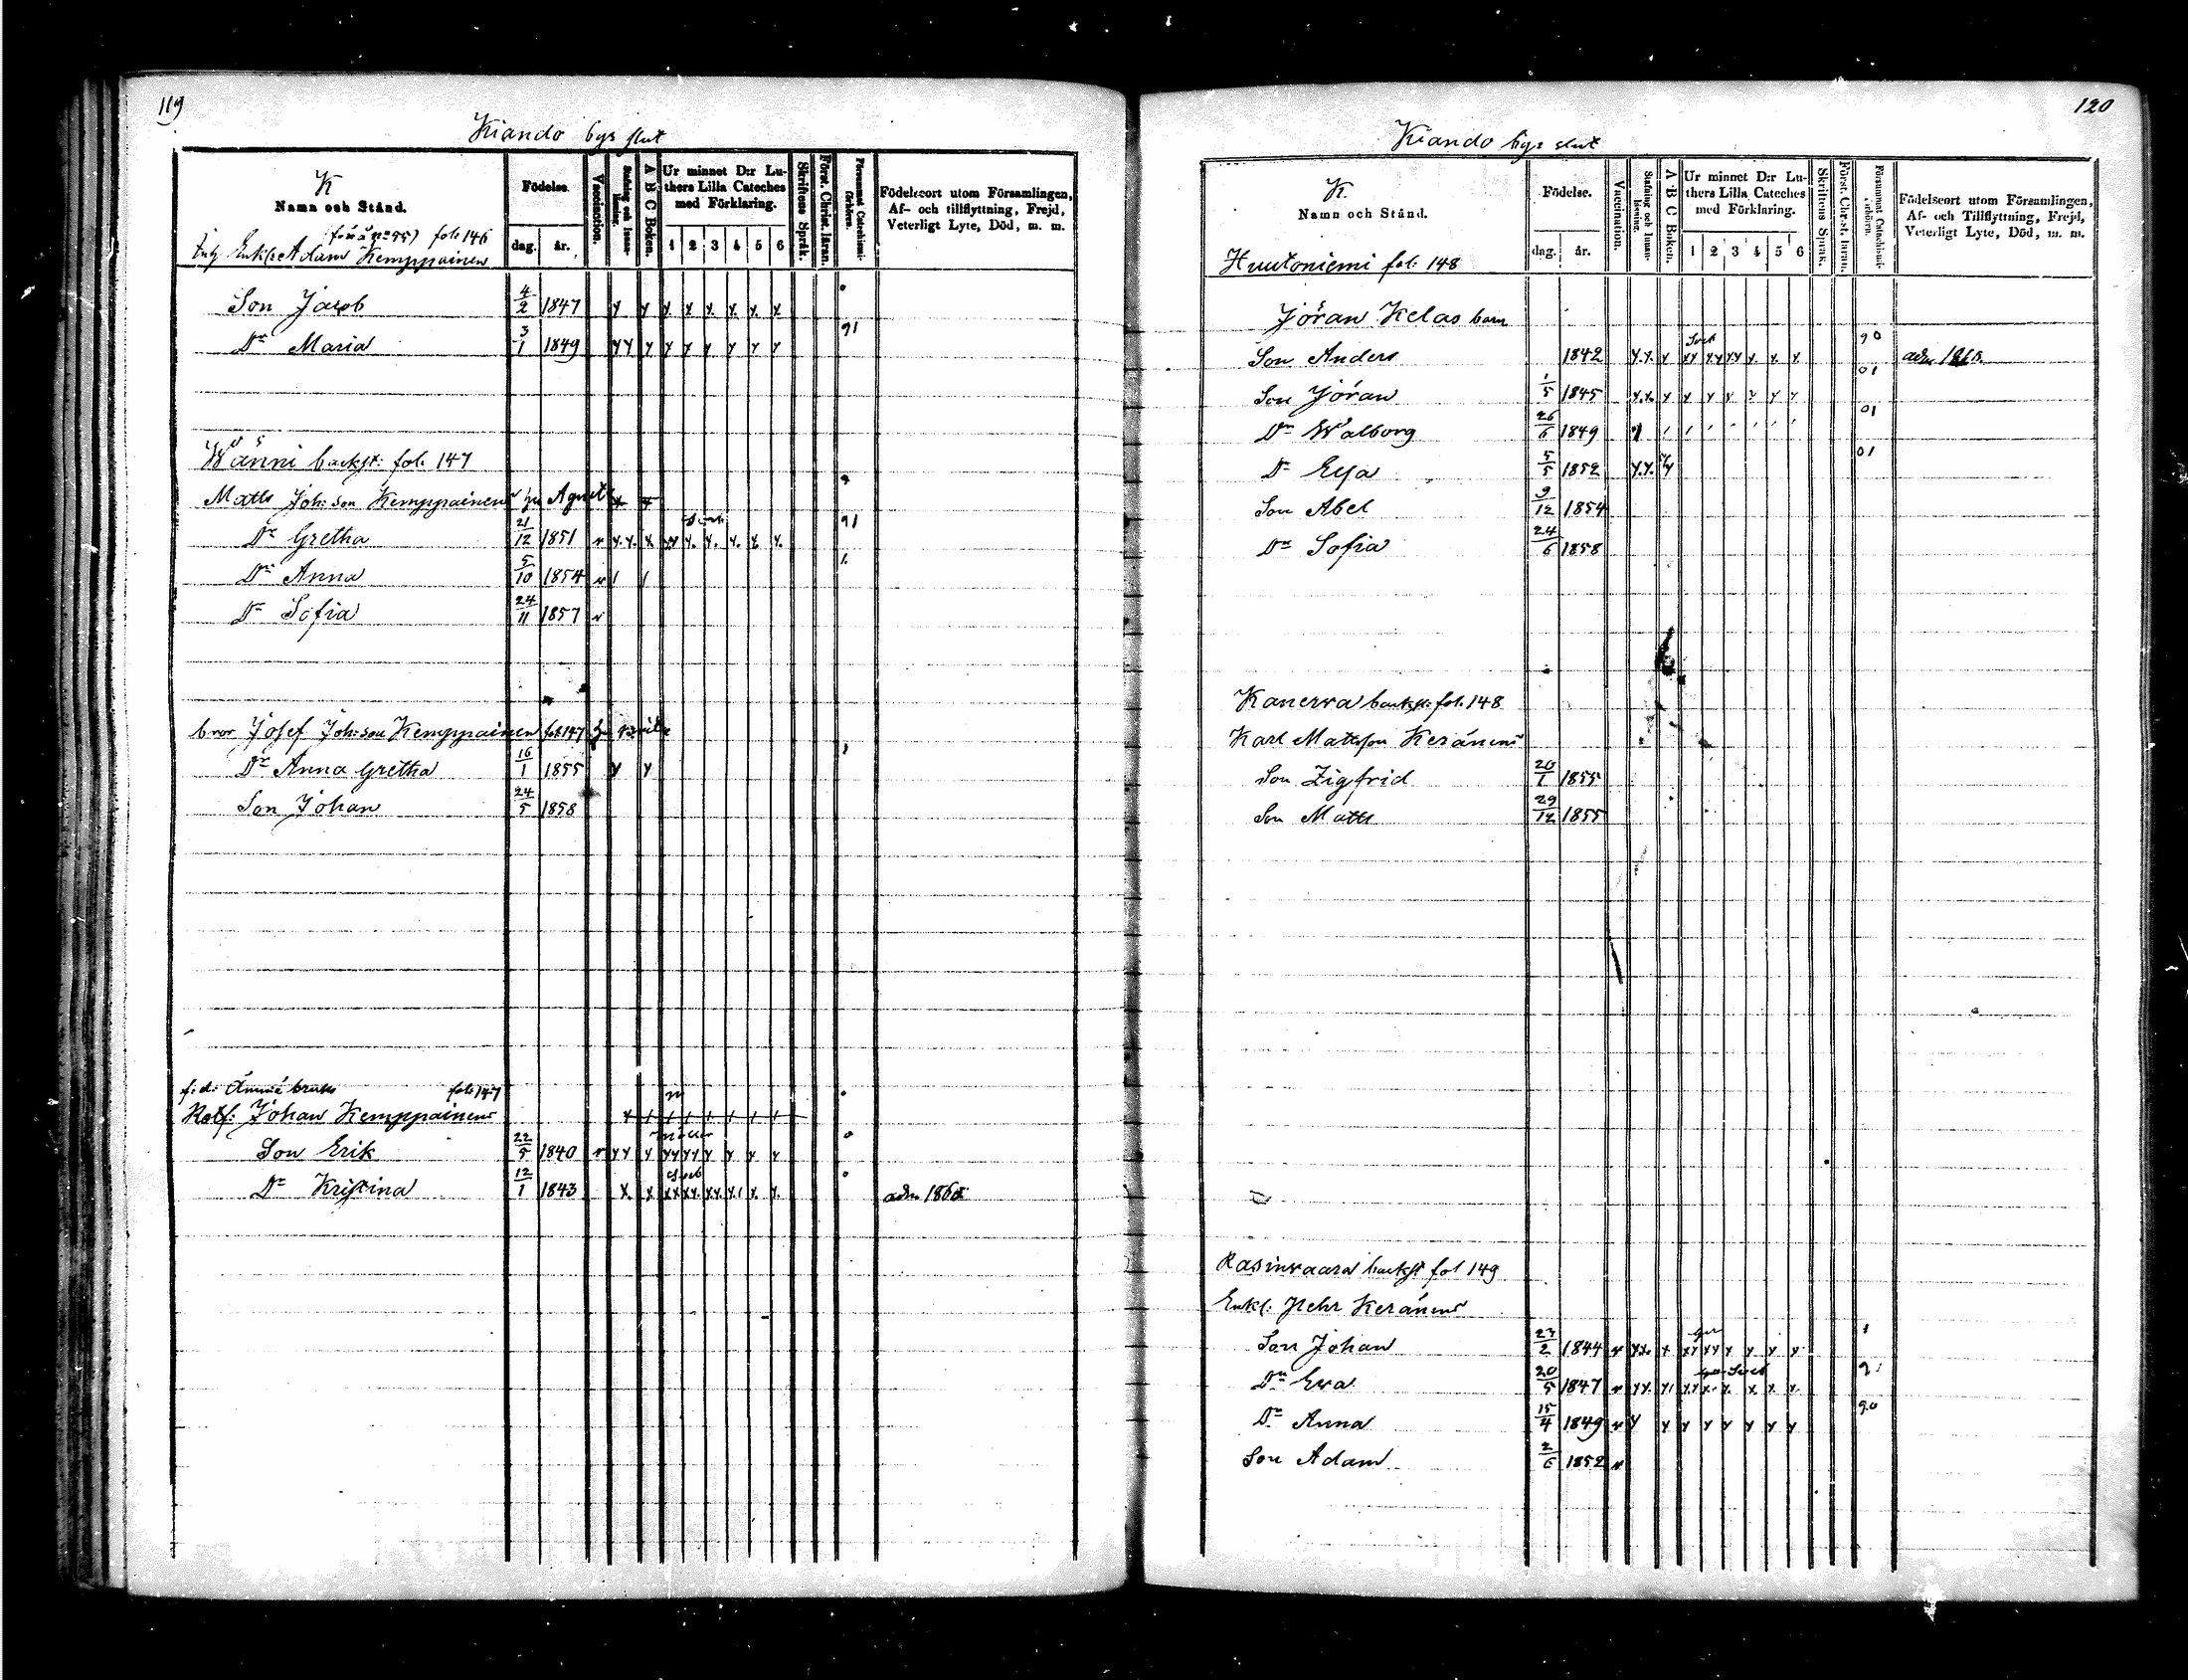 119
Kiando bys slut
K
Namn och Stånd.
Födelse.
dag. år.
Vaccination.
Stafning och Innanläsning.
A B C Boken.
Ur minnet D:r Luthers Lilla Cateches med Förklaring.
1 2 3 4 5 6
Skriftens Språk.
Först. Christ. läran.
Försummat Catechismiförhören.
Födelseort utom Församlingen,
Af- och tillflyttning, Frejd,
Veterligt Lyte, Död, m. m.
fol: 146
Enkl: Adam Kemppainen
Son Jacob 4/2 1847 y y y. y. y. y. y. y.
Dr Maria 3/1 1849 yy y y y y y y y 91
Wänni backst: fol. 147
Matts Joh: son Kemppainens
Dr Gretha 21/12 1851 v y.y. x yy y. y. y. y. y. 91
Dr Anna 5/10 1854 v / /
Dr Sofia 24/11 1857 v
bror Josef Joh: son Kemppainen fol. 147
Dr Anna Gretha 16/1 1855 y y
Son Johan 24/5 1858
f: d: Ämmä bruks fol: 147
Johan Kemppainens
Son Erik 22/5 1840 v yy y yy yy y y y y
Dr Kristina 12/1 1843 x x xx xx. xx x x. x. adm 1860
120
Kiando bys slut
K.
Namn och Stånd.
Födelse.
dag. år.
Vaccination.
Stafning och Innanläsning.
A B C Boken.
Ur minnet D:r Luthers Lilla Cateches med Förklaring.
1 2 3 4 5 6
Skriftens Språk.
Först. Christ. läran.
Försummat Catechismiförhören.
Födelseort utom Församlingen,
Af- och Tillflyttning, Frejd,
Veterligt Lyte, Död, m. m.
Huutoniemi fol. 148
Jöran Kelas barn
Son Anders 1842 y.y. y yy yy yy y. y. y 90 adm 1860.
Son Jöran 1/5 1845 y.y. y y y y y y y 01
Dr Walborg 26/6 1849 01
Dr Eva 5/5 1852 y.y. y 01
Son Abel 9/12 1854
Dr Sofia 24/6 1858
Kanerva backst: fol. 148
Karl Mattsson Keränens
Son Zigfrid 20/1 1855
Son Matts 29/12 1855
Rasinvaara backst fol 149
Enkl: Pehr Keränens
Son Johan 23/2 1844 v yx. x yy yy y y y y.
Dr Eva 20/5 1847 v yy. y yy x. x. x. x. x.
Dr Anna 15/4 1849 v y y y y y y y y 90
Son Adam 2/6 1852 v